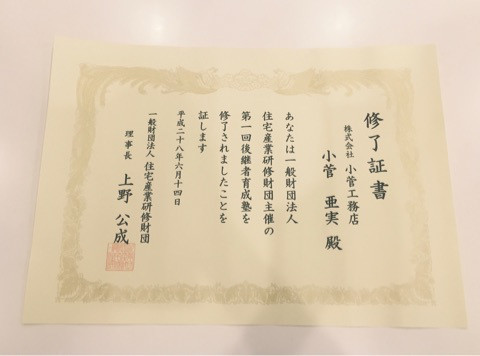 修了証書
株式会社 小菅工務店
小菅 亜実 殿
あなたは一般財団法人
住宅産業研修財団主催の
第一回後継者育成塾を
修了されましたことを
証します
平成二十八年六月十四日
一般財団法人 住宅産業研修財団
理事長 上野 公成